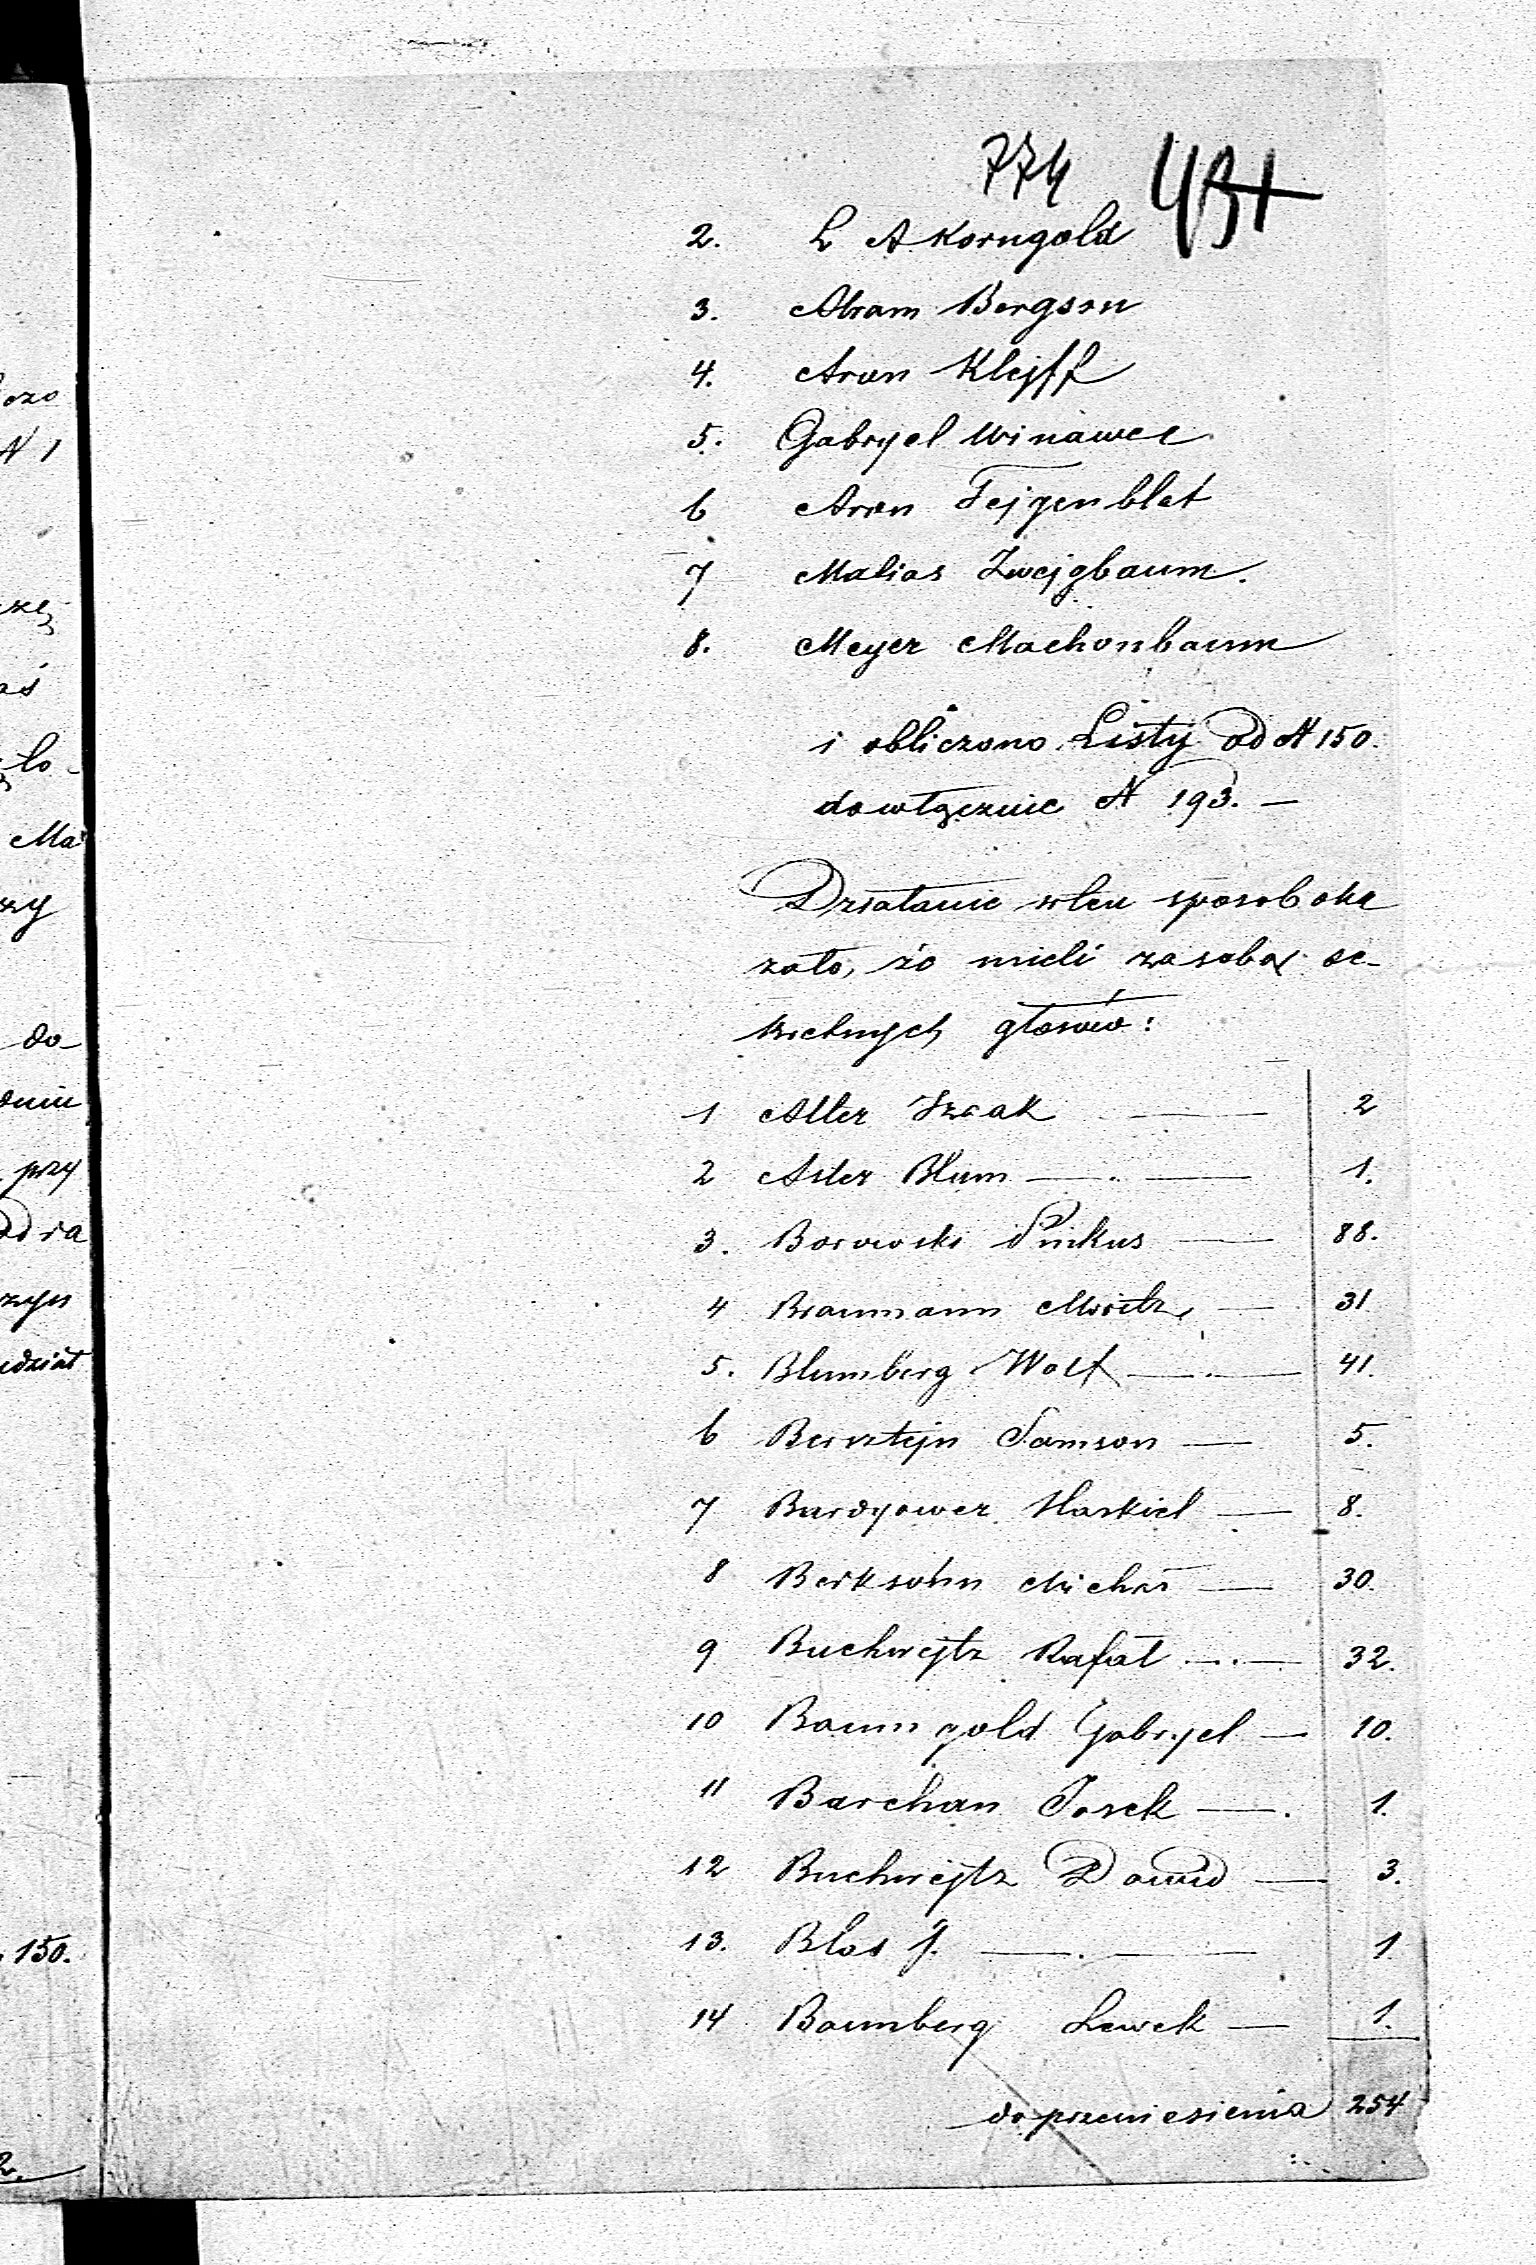 774 431
2. L A Korngold
3. Abram Bergson
4. Aron Klejff
5. Gabryel Winawer
6 Aron Fejgenblat
7 Matias Zwejgbaum.
8. Meyer Machonbaum
i obliczono Listy od N 150.
do włącznie N 193. —
Działanie w ten sposób oka
zało, że mieli za sobą od-
głosów:
1 Alter Izaak — 2
2 Aster Blum — 1.
3. Borowski Pinkus — 88.
4 Braumann Moritz — 31
5. Blumberg Wolf — 41.
6 Bernztejn Samson — 5.
7 Haskiel — 8.
8 Berksohn Michał — 30.
9 Buchwejtz Rafał — 32.
10 Baumgold Gabryel — 10.
11 Barchan Josek — 1.
12 Buchwejtz Dawid — 3.
13. Blas J. — 1
14 Baumberg Lewek — 1.
do przeniesienia 254
ozo
N 1
aś
Ma
zy
do
przy
zyn
150.
2.